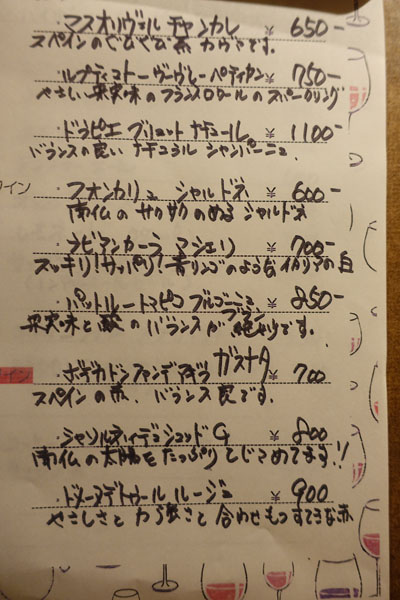 ・マスオリヴェル チャンカレ ¥ 650-
スペインのぐびぐび系 カヴァです。
・ルプティコトー ヴーヴレー ペティヤン ¥ 750-
やさしい果実味のフランスロワールのスパークリング
・ドラピエ ブリュット ナチュール ¥ 1100-
バランスの良い ナチュラル シャンパーニュ
イン
・フォンカリュ シャルドネ ¥ 600-
南仏の サクサクのめる シャルドネ
・ラビアンカーラ マシェリ ¥ 700-
スッキリ！サッパリ！青リンゴのような イタリアの白
・パットルートピコ ブルゴーニュ ブラン ¥ 850-
果実味と酸のバランスが絶妙です。
・ボデガドンファンデアギラ ガスナタ ¥ 700
スペインの赤、バランス良です。
・シャソルティデュシュッド G ¥ 800
南仏の太陽をたっぷりとじこめてます！！
・ドメーヌデトゥール ルージュ ¥ 900
やさしさと力強さと合わせもつすてきな赤